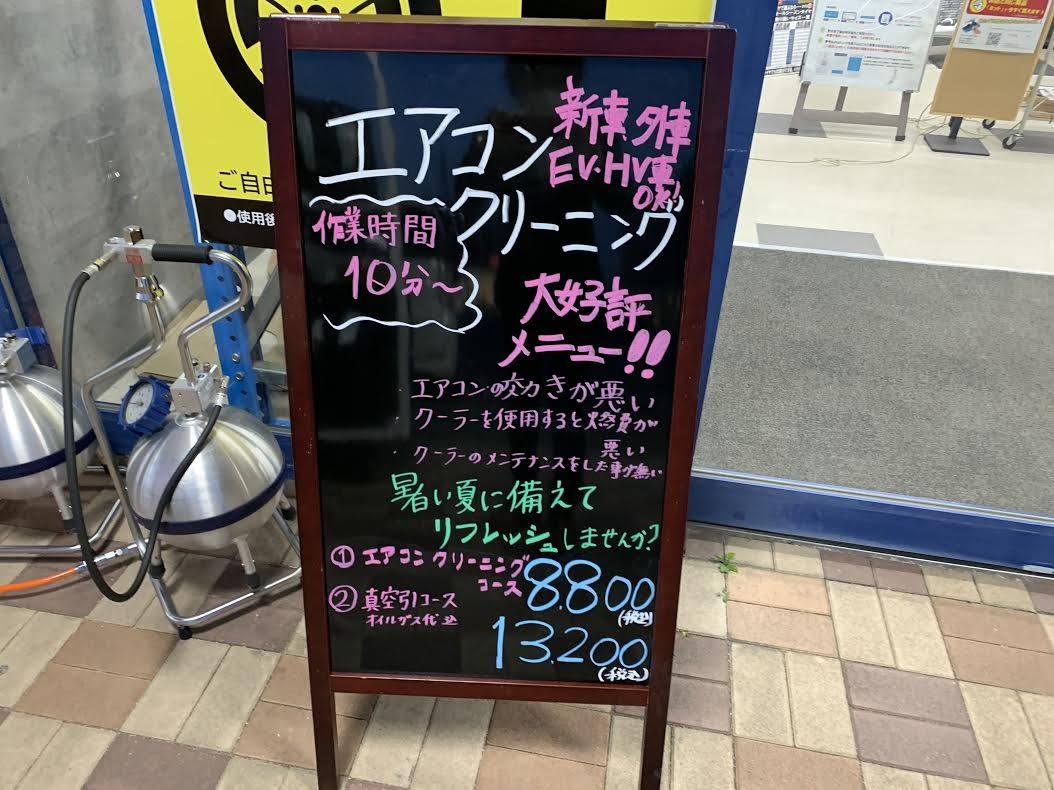 エアコン
クリーニング
新車 外車
EV・HV車
OK!!
作業時間
10分～
大好評
メニュー!!
・エアコンの効きが悪い
・クーラーを使用すると燃費が
悪い
・クーラーのメンテナンスをした事が無い
暑い夏に備えて
リフレッシュしませんか?
① エアコンクリーニング
コース
8.800
(税込)
② 真空引コース
オイルガス代込
13.200
(税込)
ご自由
●使用後